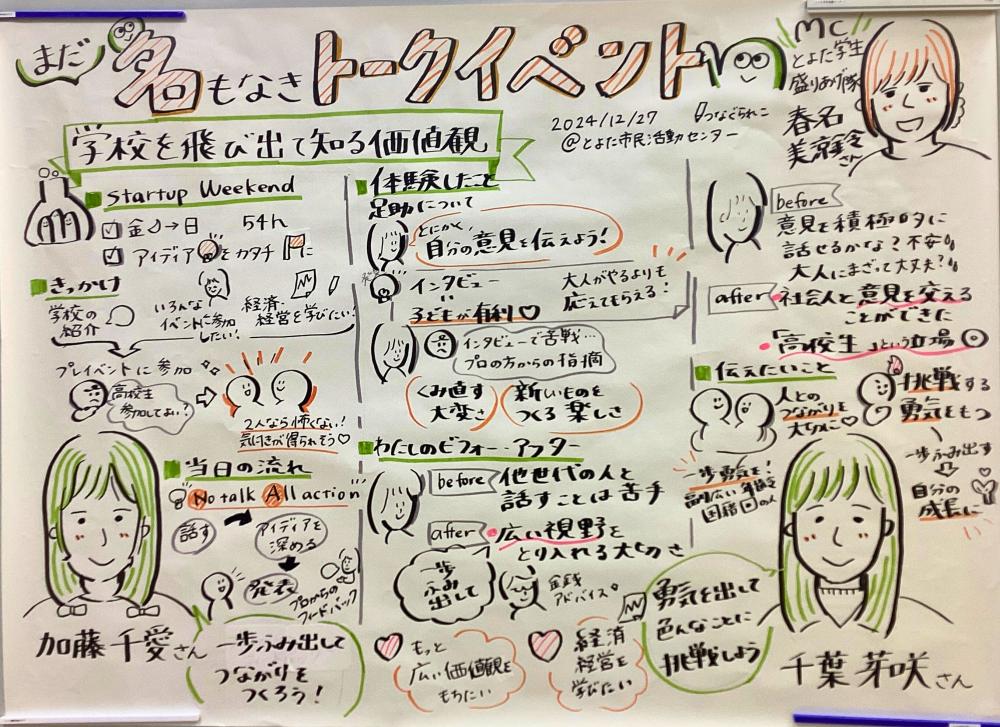 まだ
名もなきトークイベント
学校を飛び出て知る価値観
2024/12/27
@とよた市民活動センター
つなぐられこ
MC
とよた学生
盛りあげ隊
春名
さん
startup Weekend
金→日 54h
アイディアをカタチに
きっかけ
学校の
紹介
いろんな
イベントに参加
したい!
経済・
経営を学びたい!
プレイベントに参加
高校生
参加してよい?
2人なら怖くない!
気付きが得られそう♡
当日の流れ
No talk All action
話す
アイディアを
深める
発表
プロからの
フィードバック
加藤 千愛さん
一歩ふみ出して
つながりを
つくろう!
体験したこと
足助について
とにかく
自分の意見を伝えよう!
インタビュー
子どもが有利♡
大人がやるよりも
応えてもらえる!
インタビューで苦戦…
プロの方からの指摘
くみ直す
大変さ
新しいものを
つくる楽しさ
わたしのビフォーアフター
before
他世代の人と
話すことは苦手
after
広い視野を
とり入れる大切さ
一歩
ふみ
出して
金銭
アドバイス
もっと
広い価値観を
もちたい
経済
経営を
学びたい
before
意見を積極的に
話せるかな?不安
大人にまざって大丈夫?
after
社会人と意見を交える
ことができた
「高校生」という立場◎
伝えたいこと
人との
つながりを
大切に♡
挑戦する
勇気をもつ
一歩ふみ出す
自分の
成長に
一歩勇気を!
幅広い年齢
国籍の人
勇気を出して
色んなことに
挑戦しよう
千葉 芽咲さん